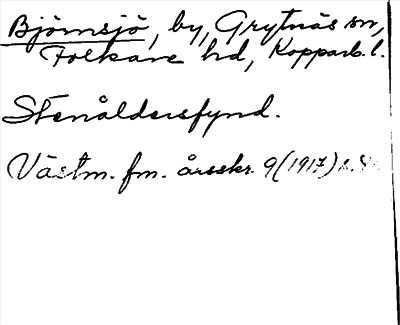 Björnsjö, by, Grytnäs sn,
Folkare hd, Kopparb. l.
Stenåldersfynd.
Västm. fm. årsskr. 9 (1917) s.